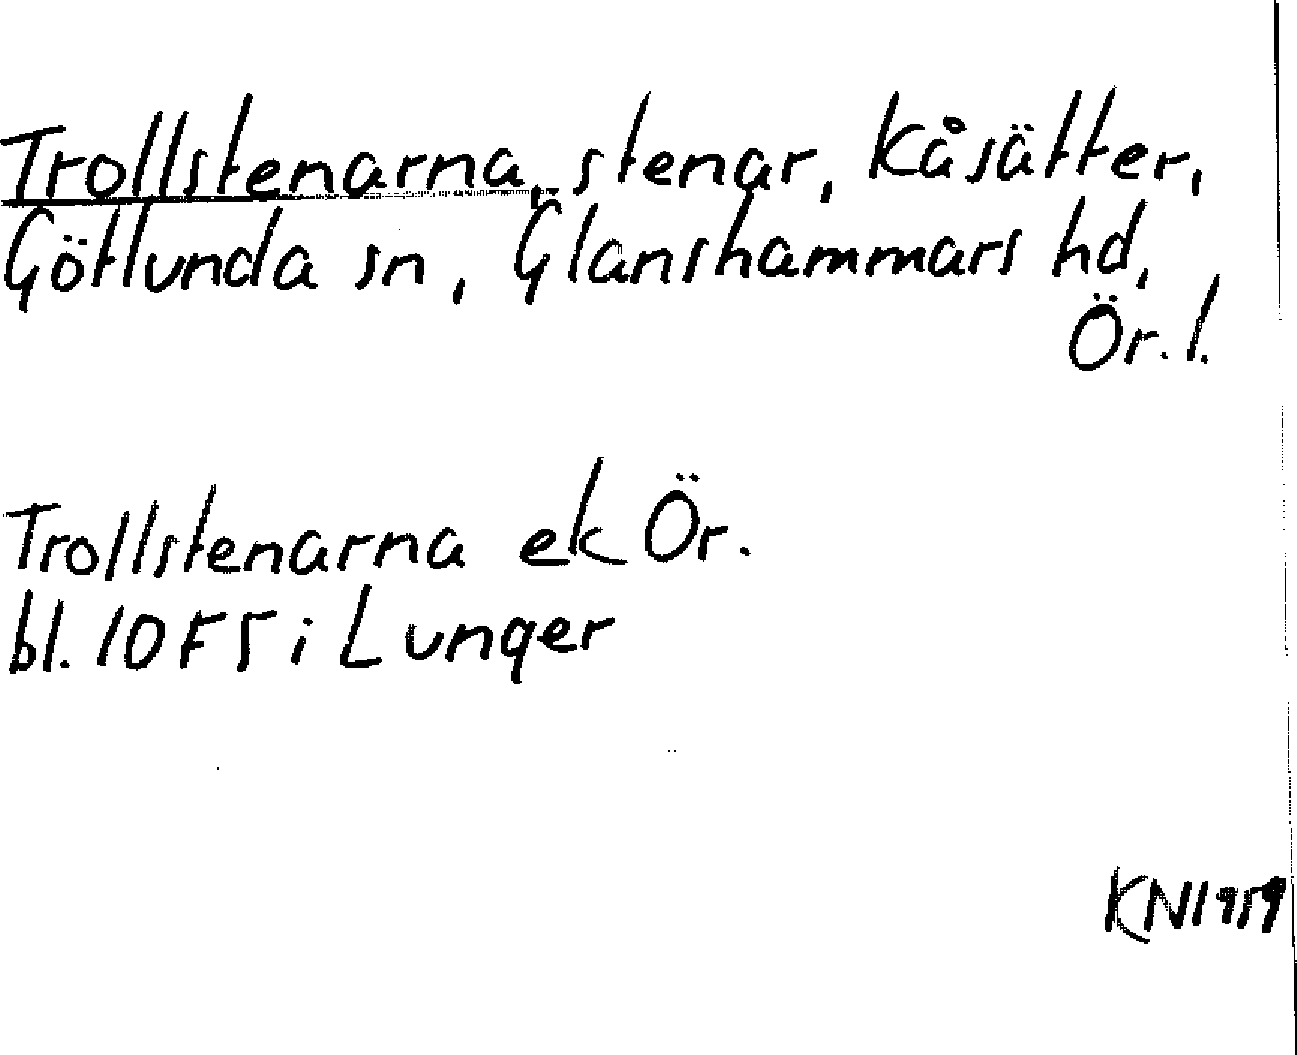 Trollstenarna, stenar, Kåsätter,
Götlunda sn, Glanshammars hd,
Ör. l.
Trollstenarna ek Ör.
bl. 10F5 i Lunger
KN1959